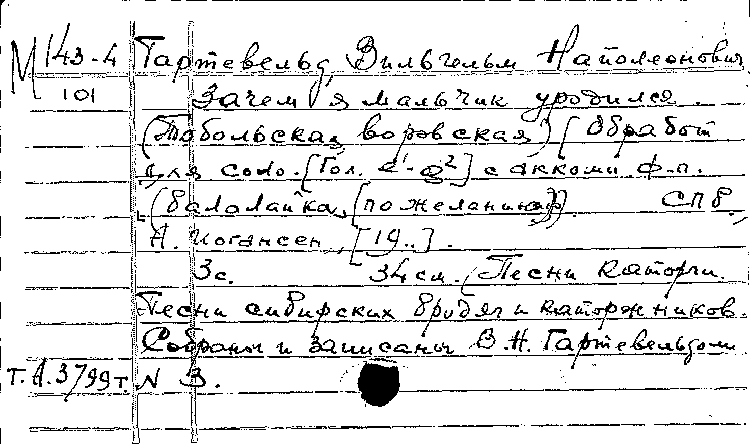 М 143-4 Гартевельд, Вильгельм Наполеонович
101 Зачем я мальчик уродился.
(Тобольская воровская) [Обработ.
для соло. [Гол. e¹-g²] с аккомп. ф-п.
(балалайка, (по желанию)) СПб.,
А. Иогансен, [19..].
3с. 34см. (Песни каторги.
Песни сибирских бродяг и каторжников.
Собраны и записаны В.Н. Гартевельдом.
Т.А.3799т. N 3.